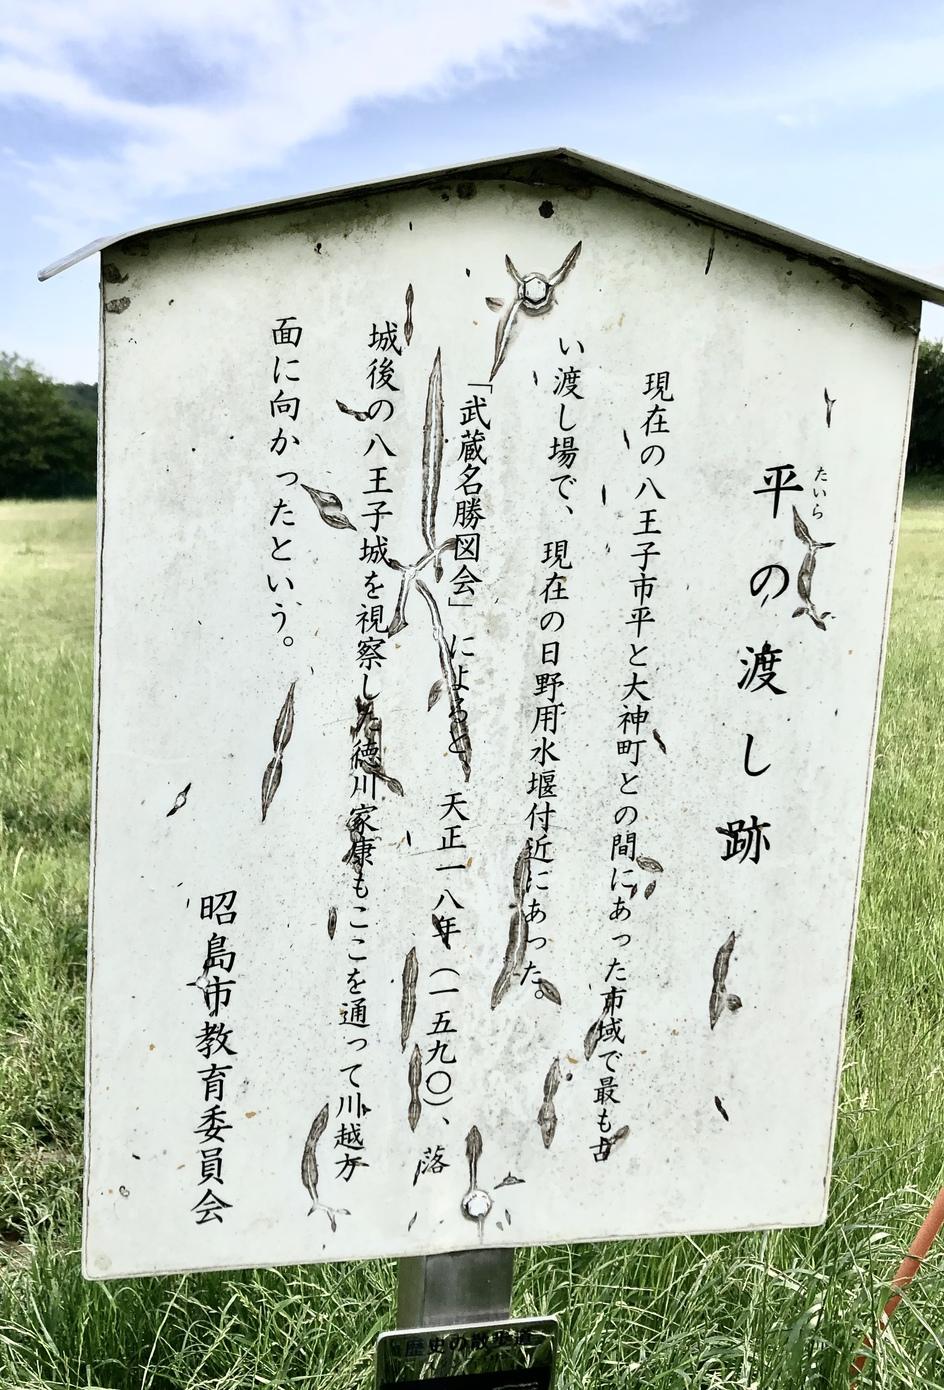 平の渡し跡
たいら
現在の八王子市平と大神町との間にあった市域で最も古
い渡し場で、現在の日野用水堰付近にあった。
「武蔵名勝図会」によると天正一八年（一五九〇）、落
城後の八王子城を視察した徳川家康もここを通って川越方
面に向かったという。
昭島市教育委員会
歴史の散歩道